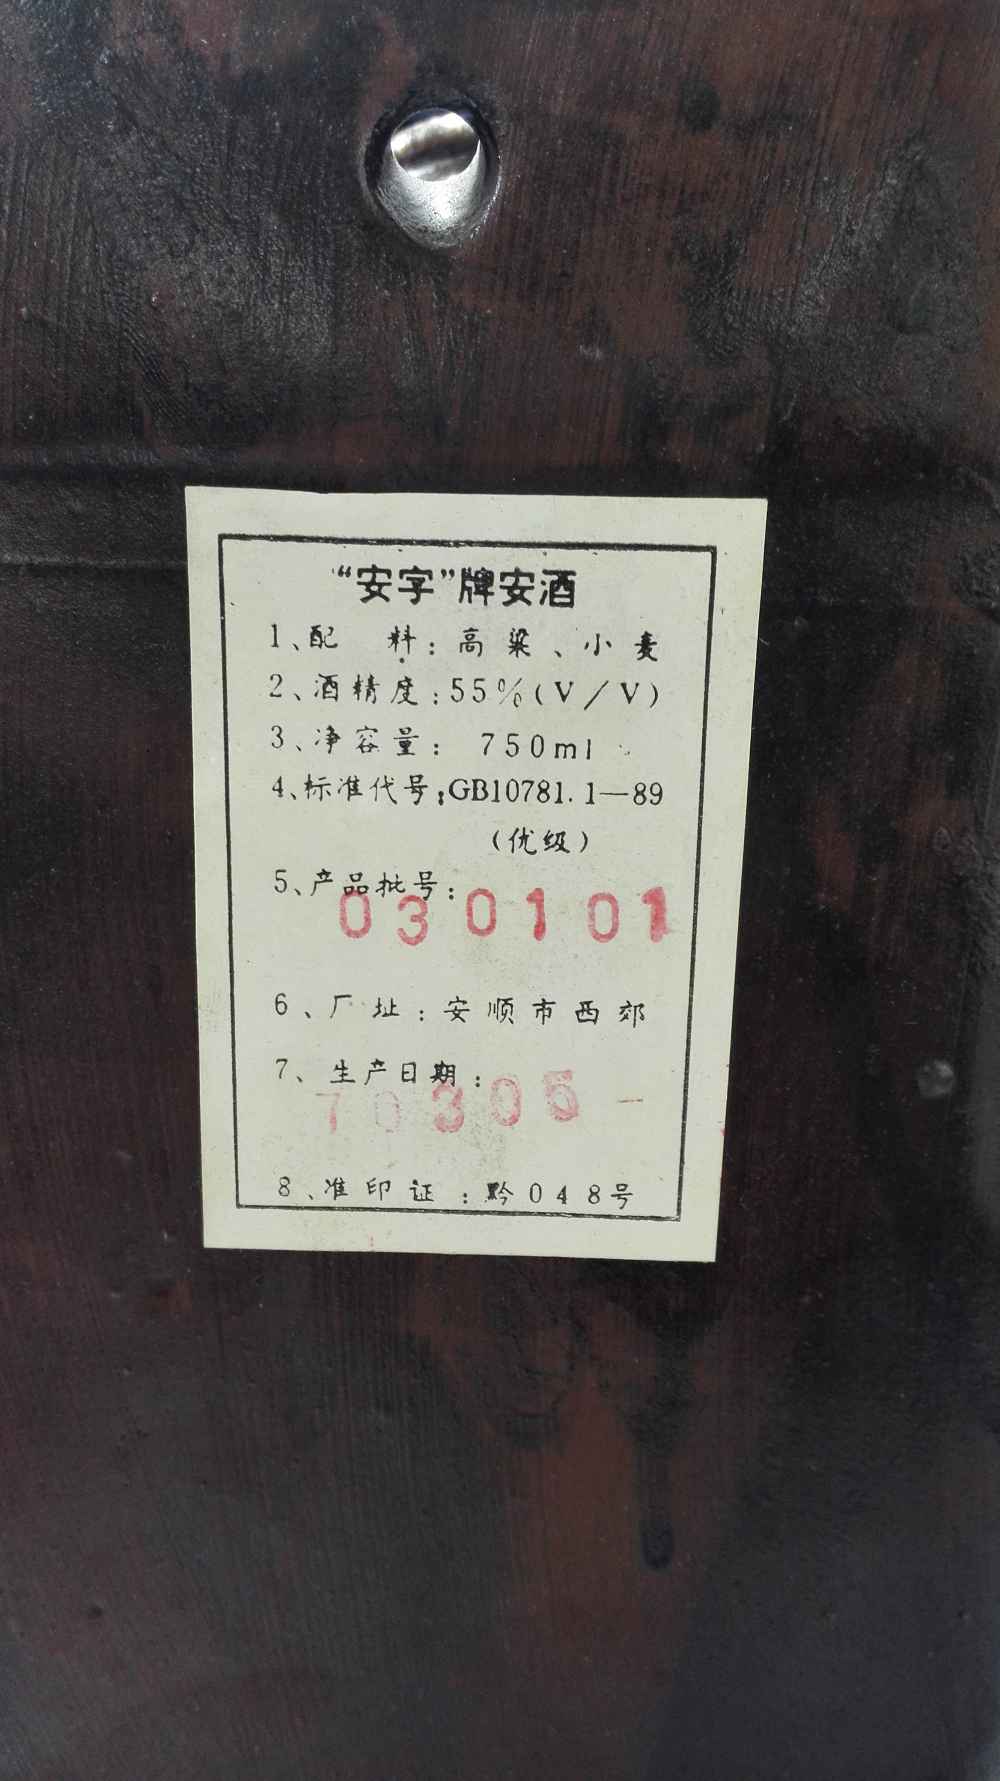 “安字”牌安酒
1、配 料：高粱、小麦
2、酒精度：55%(V/V)
3、净容量： 750ml
4、标准代号：GB10781.1—89
（优级）
5、产品批号：
030101
6、厂址：安顺市西郊
7、生产日期：
70305
8、准印证：黔048号